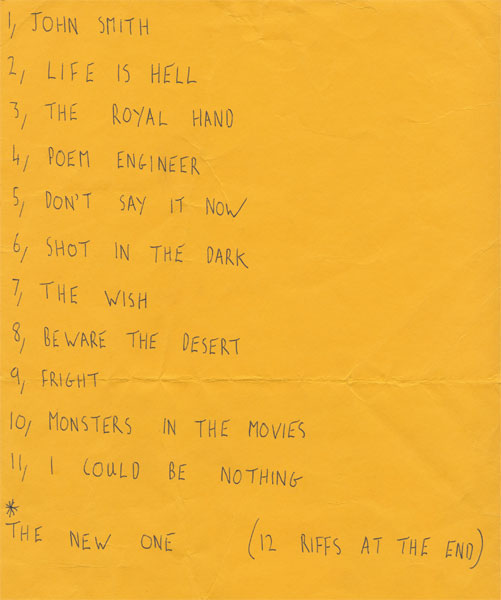 1, JOHN SMITH
2, LIFE IS HELL
3, THE ROYAL HAND
4, POEM ENGINEER
5, DON'T SAY IT NOW
6, SHOT IN THE DARK
7, THE WISH
8, BEWARE THE DESERT
9, FRIGHT
10, MONSTERS IN THE MOVIES
11, I COULD BE NOTHING
*
THE NEW ONE (12 RIFFS AT THE END)